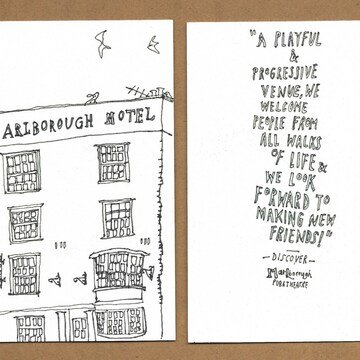 ARLBOROUGH HOTEL
"A PLAYFUL
&
PROGRESSIVE
VENUE, WE
WELCOME
PEOPLE FROM
ALL WALKS
OF LIFE &
WE LOOK
FORWARD TO
MAKING NEW
FRIENDS!"
—DISCOVER—
Marlborough
PUB & THEATRE